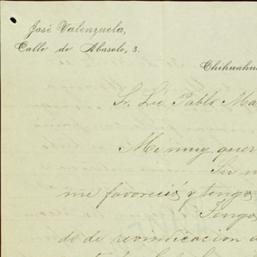 José Valenzuela,
Calle de Abasolo, 3.
Chihuahua
Sr. Lic. Pablo Ma
Me muy quer
Su
me favoreció y tengo
Tengo
do de reivindicacion